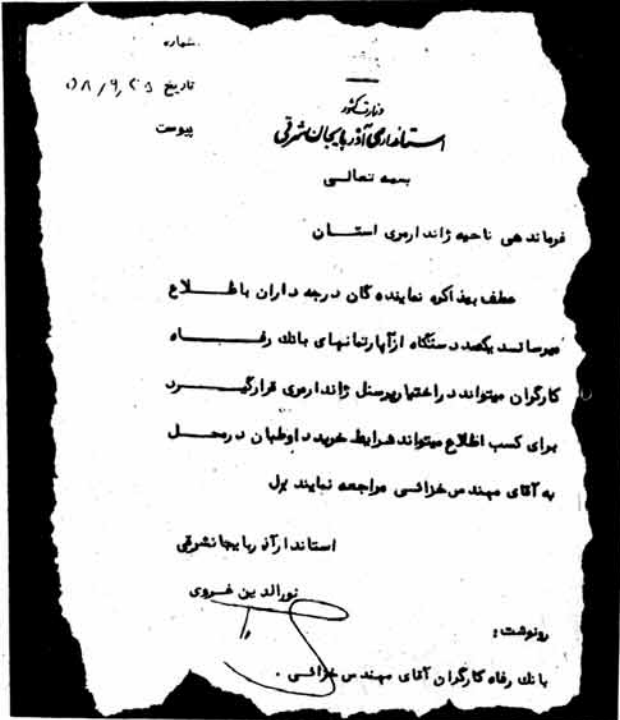 شماره
تاریخ ۵۸/۹/۲۵
پیوست
وزارت کشور
استانداری آذربایجان شرقی
بسمه تعالی
فرماندهی ناحیه ژاندارمری استان
عطف بمذاکره نماینده گان درجه داران باطلاع
میرساند یکصد دستگاه ازآپارتمانهای بانک رفاه
کارگران میتواند دراختیارپرسنل ژاندارمری قرارگیرد
برای کسب اطلاع میتواند شرایط خرید داوطبان درمحل
به آقای مهندس خزائی مراجعه نمایند
استاندارآذربایجانشرقی
نورالدین غروی
رونوشت:
بانک رفاه کارگران آقای مهندس خزائی .